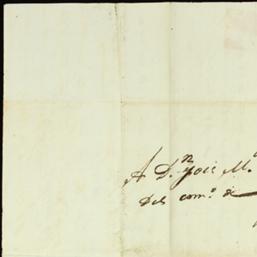 A D.n José M.a
Del com.o de